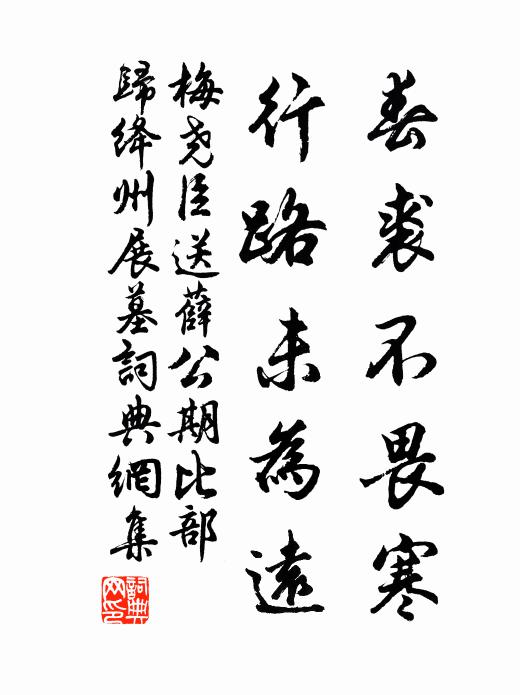 春裘不畏寒
行路未為遠
梅尧臣送薛公期比部
歸绛州展墓詞典網集
詞典网印